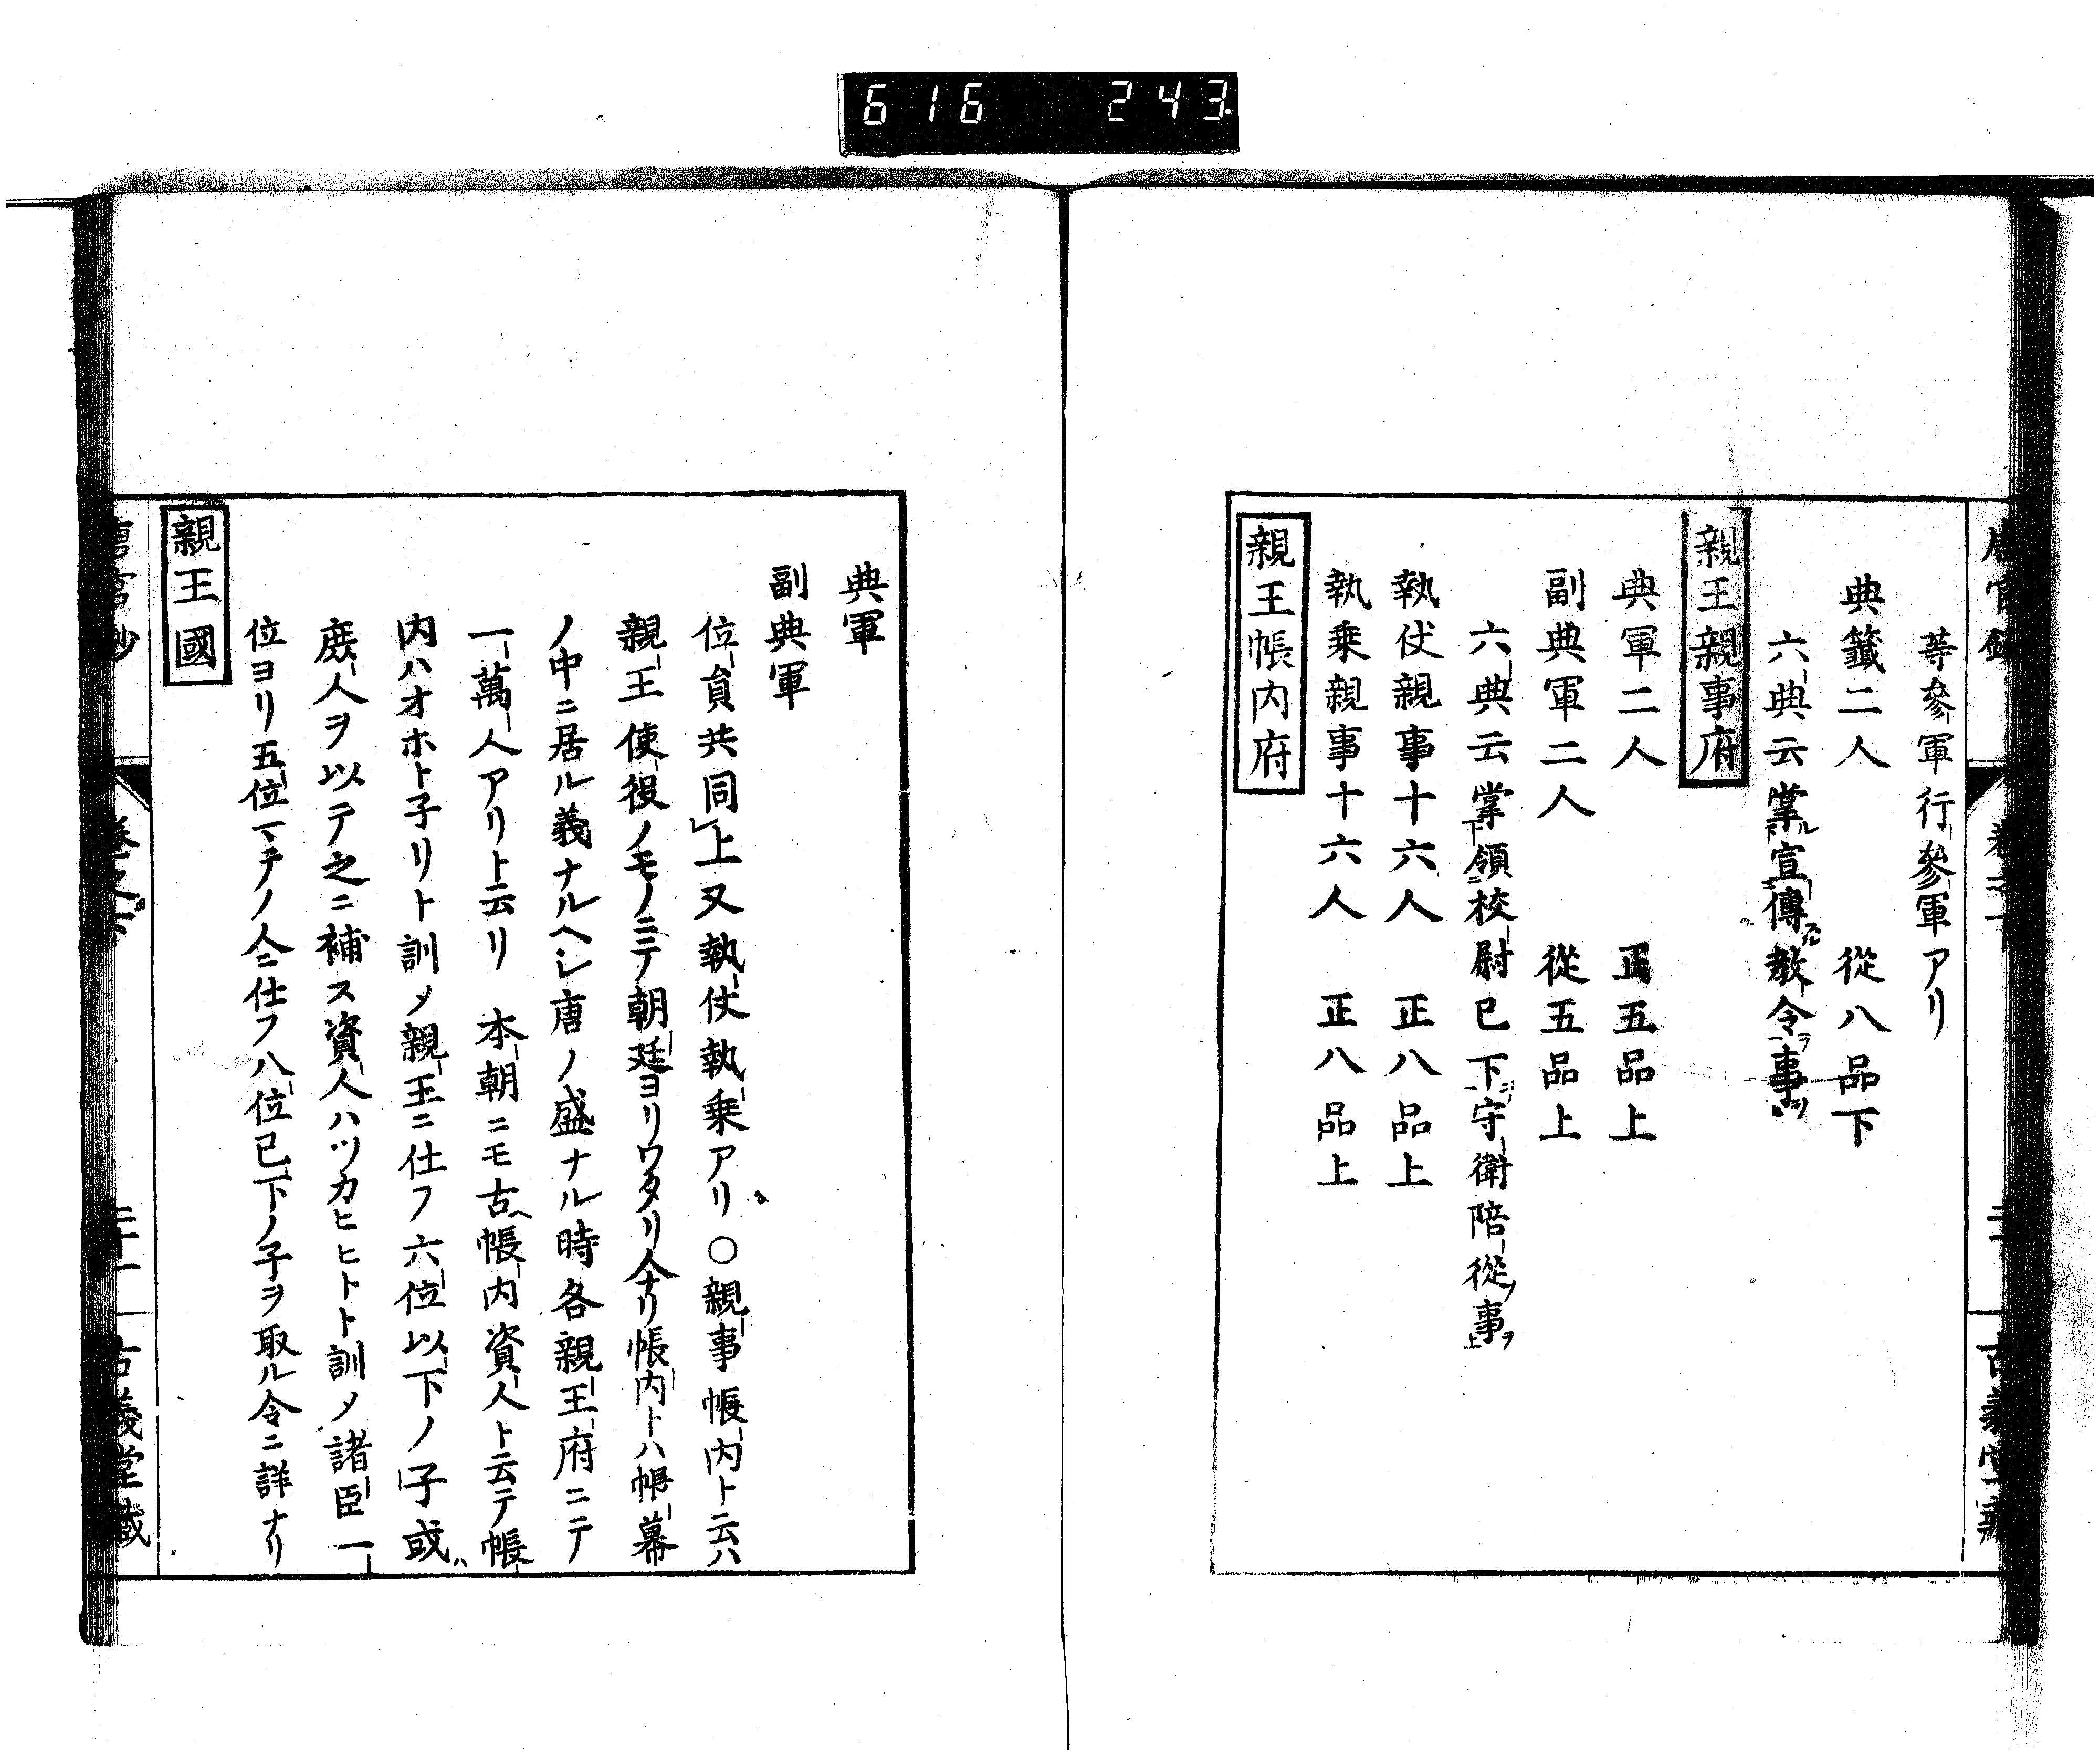 616 243
等參軍行參軍アリ
典籤二人 從八品下
六典云掌宣傳教令事
親王親事府
典軍二人 正五品上
副典軍二人 從五品上
六典云掌領校尉已下守衛陪從事
執仗親事十六人 正八品上
執乗親事十六人 正八品上
親王帳内府
典軍
副典軍
位員共同上又執仗執乗アリ○親事帳内ト云ハ
親王使役ノモノニテ朝廷ヨリワタリ人ナリ帳内トハ帳幕
ノ中ニ居ル義ナルヘシ唐ノ盛ナル時各親王府ニニテ
一萬人アリト云リ 本朝ニモ古ヘ帳内資人ト云テ帳
内ハオホト子リト訓メ親王ニ仕フ六位以下ノ子或ハ
庶人ヲ以テ之ニ補ス資人ハツカヒヒトト訓メ諸臣一
位ヨリ五位マテノ人ニ仕フ八位已下ノ子ヲ取ル令ニ詳ナリ
親王國
二十一
古義堂藏